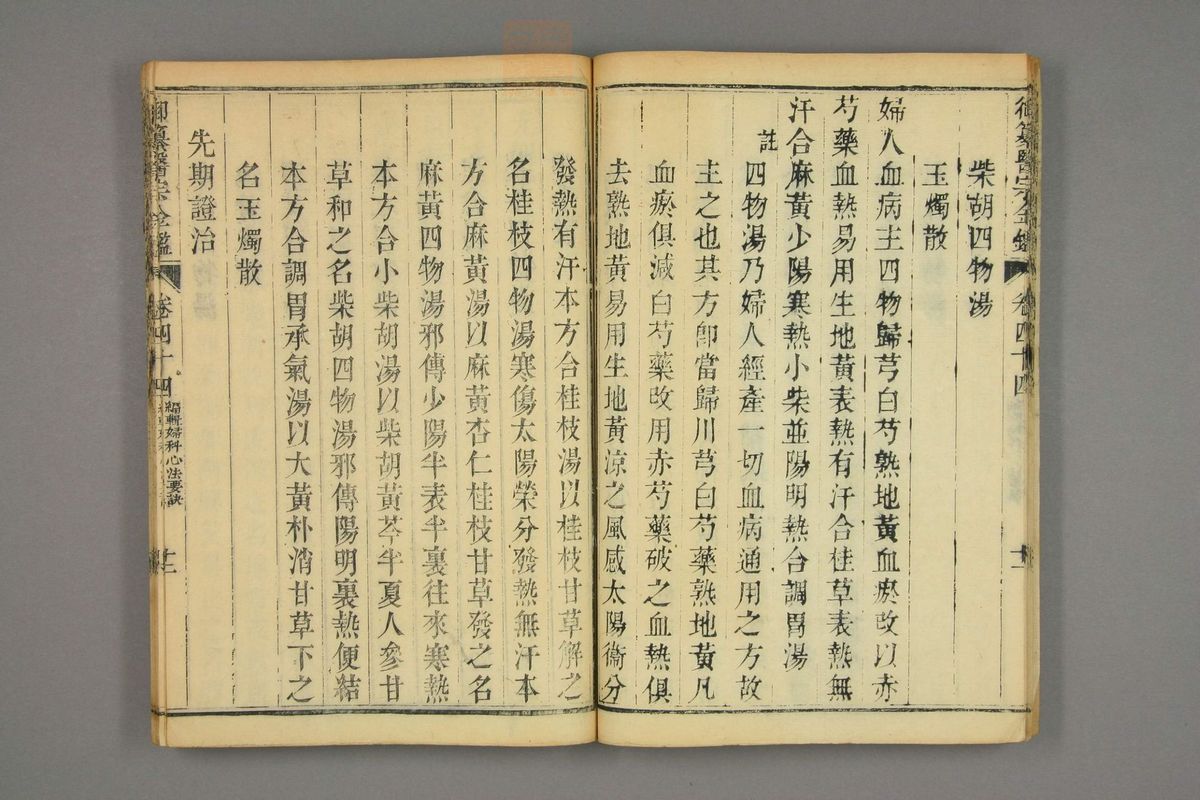 御纂醫宗金鑑 卷四十四
柴胡四物湯
玉燭散
婦人血病主四物歸芎白芍熟地黃血瘀改以赤
芍藥血熱易用生地黃表熱有汗合桂草表熱無
汗合麻黃少陽寒熱小柴並陽明熱合調胃湯
註
四物湯乃婦人經產一切血病通用之方故
主之也其方卽當歸川芎白芍藥熟地黃凡
血瘀俱減白芍藥改用赤芍藥破之血熱俱
去熟地黃易用生地黃涼之風感太陽衞分
發熱有汗本方合桂枝湯以桂枝甘草解之
名桂枝四物湯寒傷太陽榮分發熱無汗本
方合麻黃湯以麻黃杏仁桂枝甘草發之名
麻黃四物湯邪傳少陽半表半裏往來寒熱
本方合小柴胡湯以柴胡黃芩半夏人參甘
草和之名柴胡四物湯邪傳陽明裏熱便結
本方合調胃承氣湯以大黃朴消甘草下之
名玉燭散
先期證治
御纂醫宗金鑑 卷四十四 編輯婦科心法要訣 十二